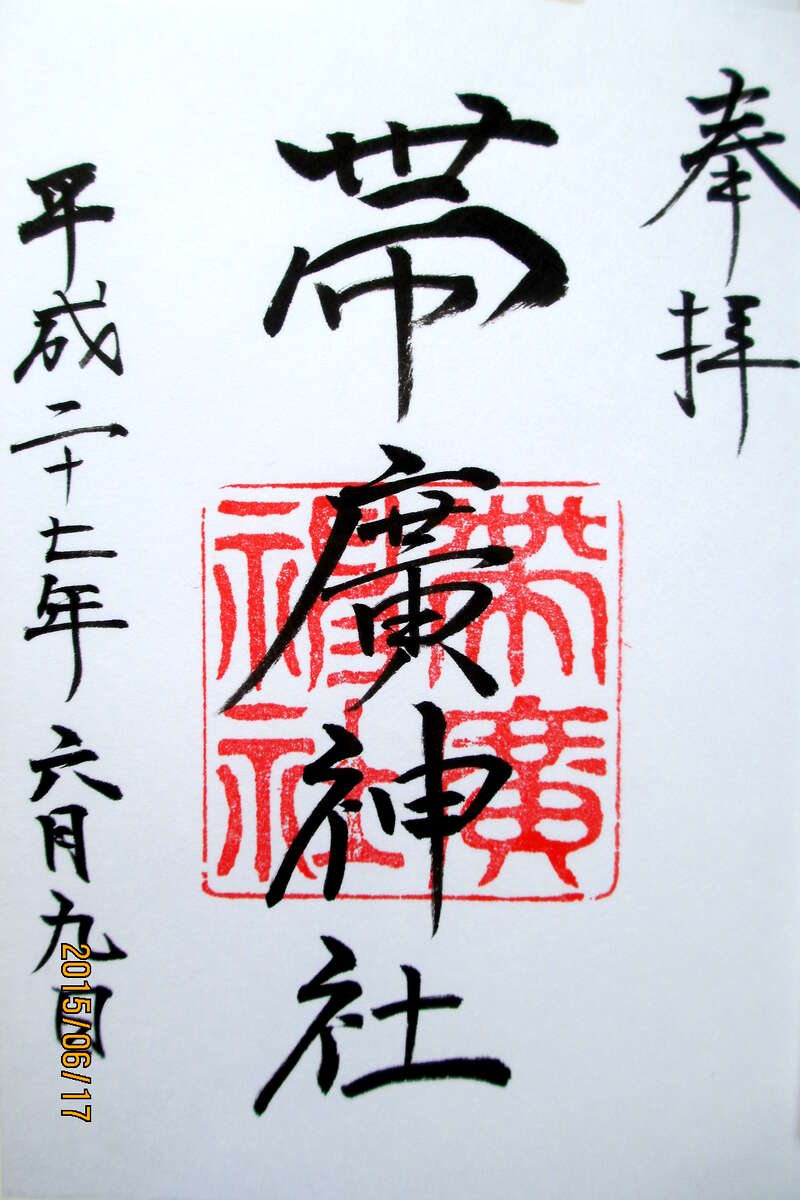 奉拝
帯廣神社
帯廣神社
平成二十七年六月九日
2015/06/17